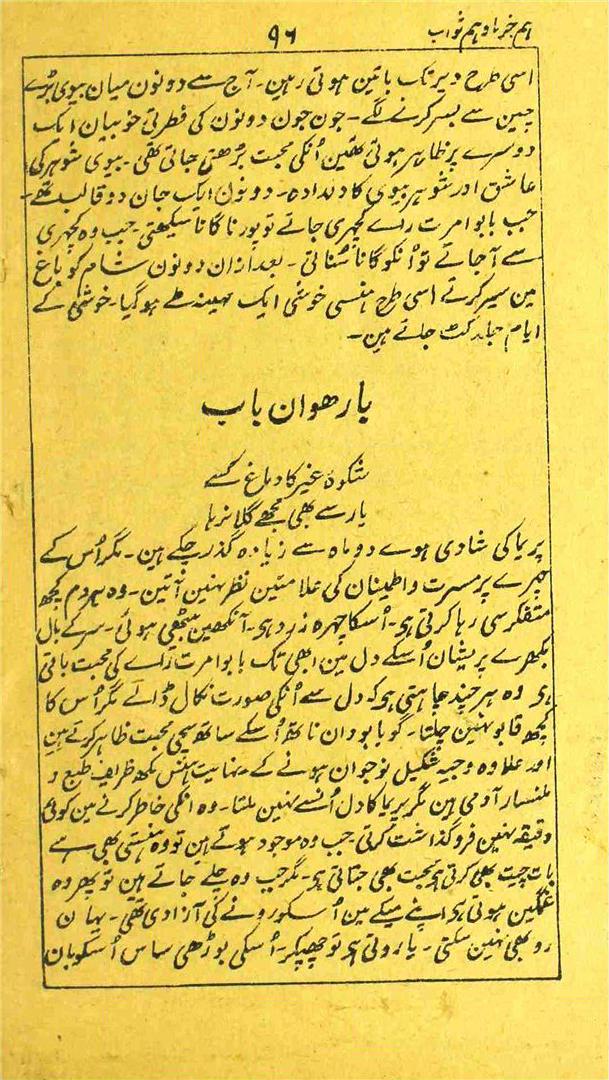 ہم خرما و ہم ثواب
۹۶
اسی طرح دیر تک باتین ہوتی رہین۔ آج سے دونون میان بیوی بڑے
چین سے بسر کرنے لگے۔ جون جون دونون کی فطرتی خوبیان ایک
دوسرے پر ظاہر ہوتی تھین اُنکی محبت بڑھتی جاتی تھی۔ بیوی شوہر کی
عاشق اور شوہر بیوی کا دلدادہ۔ دونون ایک جان دو قالب تھے۔
جب بابو امرت راے کچہری جاتے تو پورنا گانا سیکھتی۔ جب وہ کچہری
سے آجاتے تو اُنکو گانا سُناتی۔ بعد ازان دونون شام کو باغ
مین سیر کرتے اسی طرح ہنسی خوشی ایک مہینہ طے ہو گیا۔ خوشی کے
ایام جلد کٹ جاتے ہین۔
بارھوان باب
شکوۂ غیر کا دماغ کسے
یار سے بھی مجھے گلا نرہا
پریما کی شادی ہوے دو ماہ سے زیادہ گذر چکے ہین۔ مگر اُس کے
چہرے پر مسرت و اطمینان کی علامتین نظر نہین آتین۔ وہ ہر دم کچھ
متفکر سی رہا کرتی ہی۔ اُسکا چہرہ زرد ہی۔ آنکھین بیٹھی ہوئی۔ سر کے بال
بکھرے پریشان اُسکے دل مین ابھی تک بابو امرت راے کی محبت باقی
ہی وہ ہر چند چاہتی ہی کہ دل سے اُنکی صورت نکال ڈالے مگر اُس کا
کچھ قابو نہین چلتا۔ گو بابو دان ناتھ اُسکے ساتھ سچی محبت ظاہر کرتے ہین
اور علاوہ وجیہ شکیل نوجوان ہونے کے۔ نہایت ہنس مکھ ظریف طبع و
ملنسار آدمی ہین مگر پریما کا دل اُنسے نہین ملتا۔ وہ انکی خاطر کرنے مین کوئی
دقیقہ نہین فروگذاشت کرتی۔ جب وہ موجود ہوتے ہین تو وہ ہنستی بھی ہے
بات چیت بھی کرتی ہی محبت بھی جتاتی ہی۔ مگر جب وہ چلے جاتے ہین تو پھر وہ
غمگین ہوتی ہی اپنے میکے مین اُسکو رونے کی آزادی تھی۔ یہان
رو بھی نہین سکتی۔ یا روتی ہی تو چھپکر۔ اُسکی بوڑھی ساس اُسکو پان